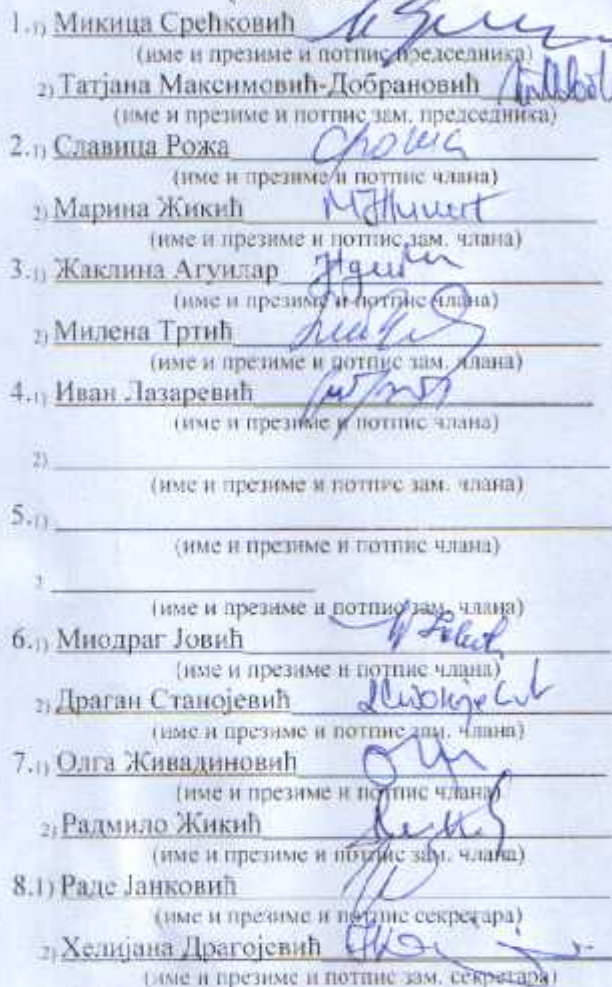 1.1) Микица Срећковић
(име и презиме и потпис председника)
2) Татјана Максимовић-Добрановић
(име и презиме и потпис зам. председника)
2.1) Славица Рожа
(име и презиме и потпис члана)
2) Марина Жикић
(име и презиме и потпис зам. члана)
3.1) Жаклина Агуилар
(име и презиме и потпис члана)
2) Милена Тртић
(име и презиме и потпис зам. члана)
4.1) Иван Лазаревић
(име и презиме и потпис члана)
2)
(име и презиме и потпис зам. члана)
5.1)
(име и презиме и потпис члана)
2
(име и презиме и потпис зам. члана)
6.1) Миодраг Јовић
(име и презиме и потпис члана)
2) Драган Станојевић
(име и презиме и потпис зам. члана)
7.1) Олга Живадиновић
(име и презиме и потпис члана)
2) Радмило Жикић
(име и презиме и потпис зам. члана)
8.1) Раде Јанковић
(име и презиме и потпис секретара)
2) Хелијана Драгојевић
(име и презиме и потпис зам. секретара)